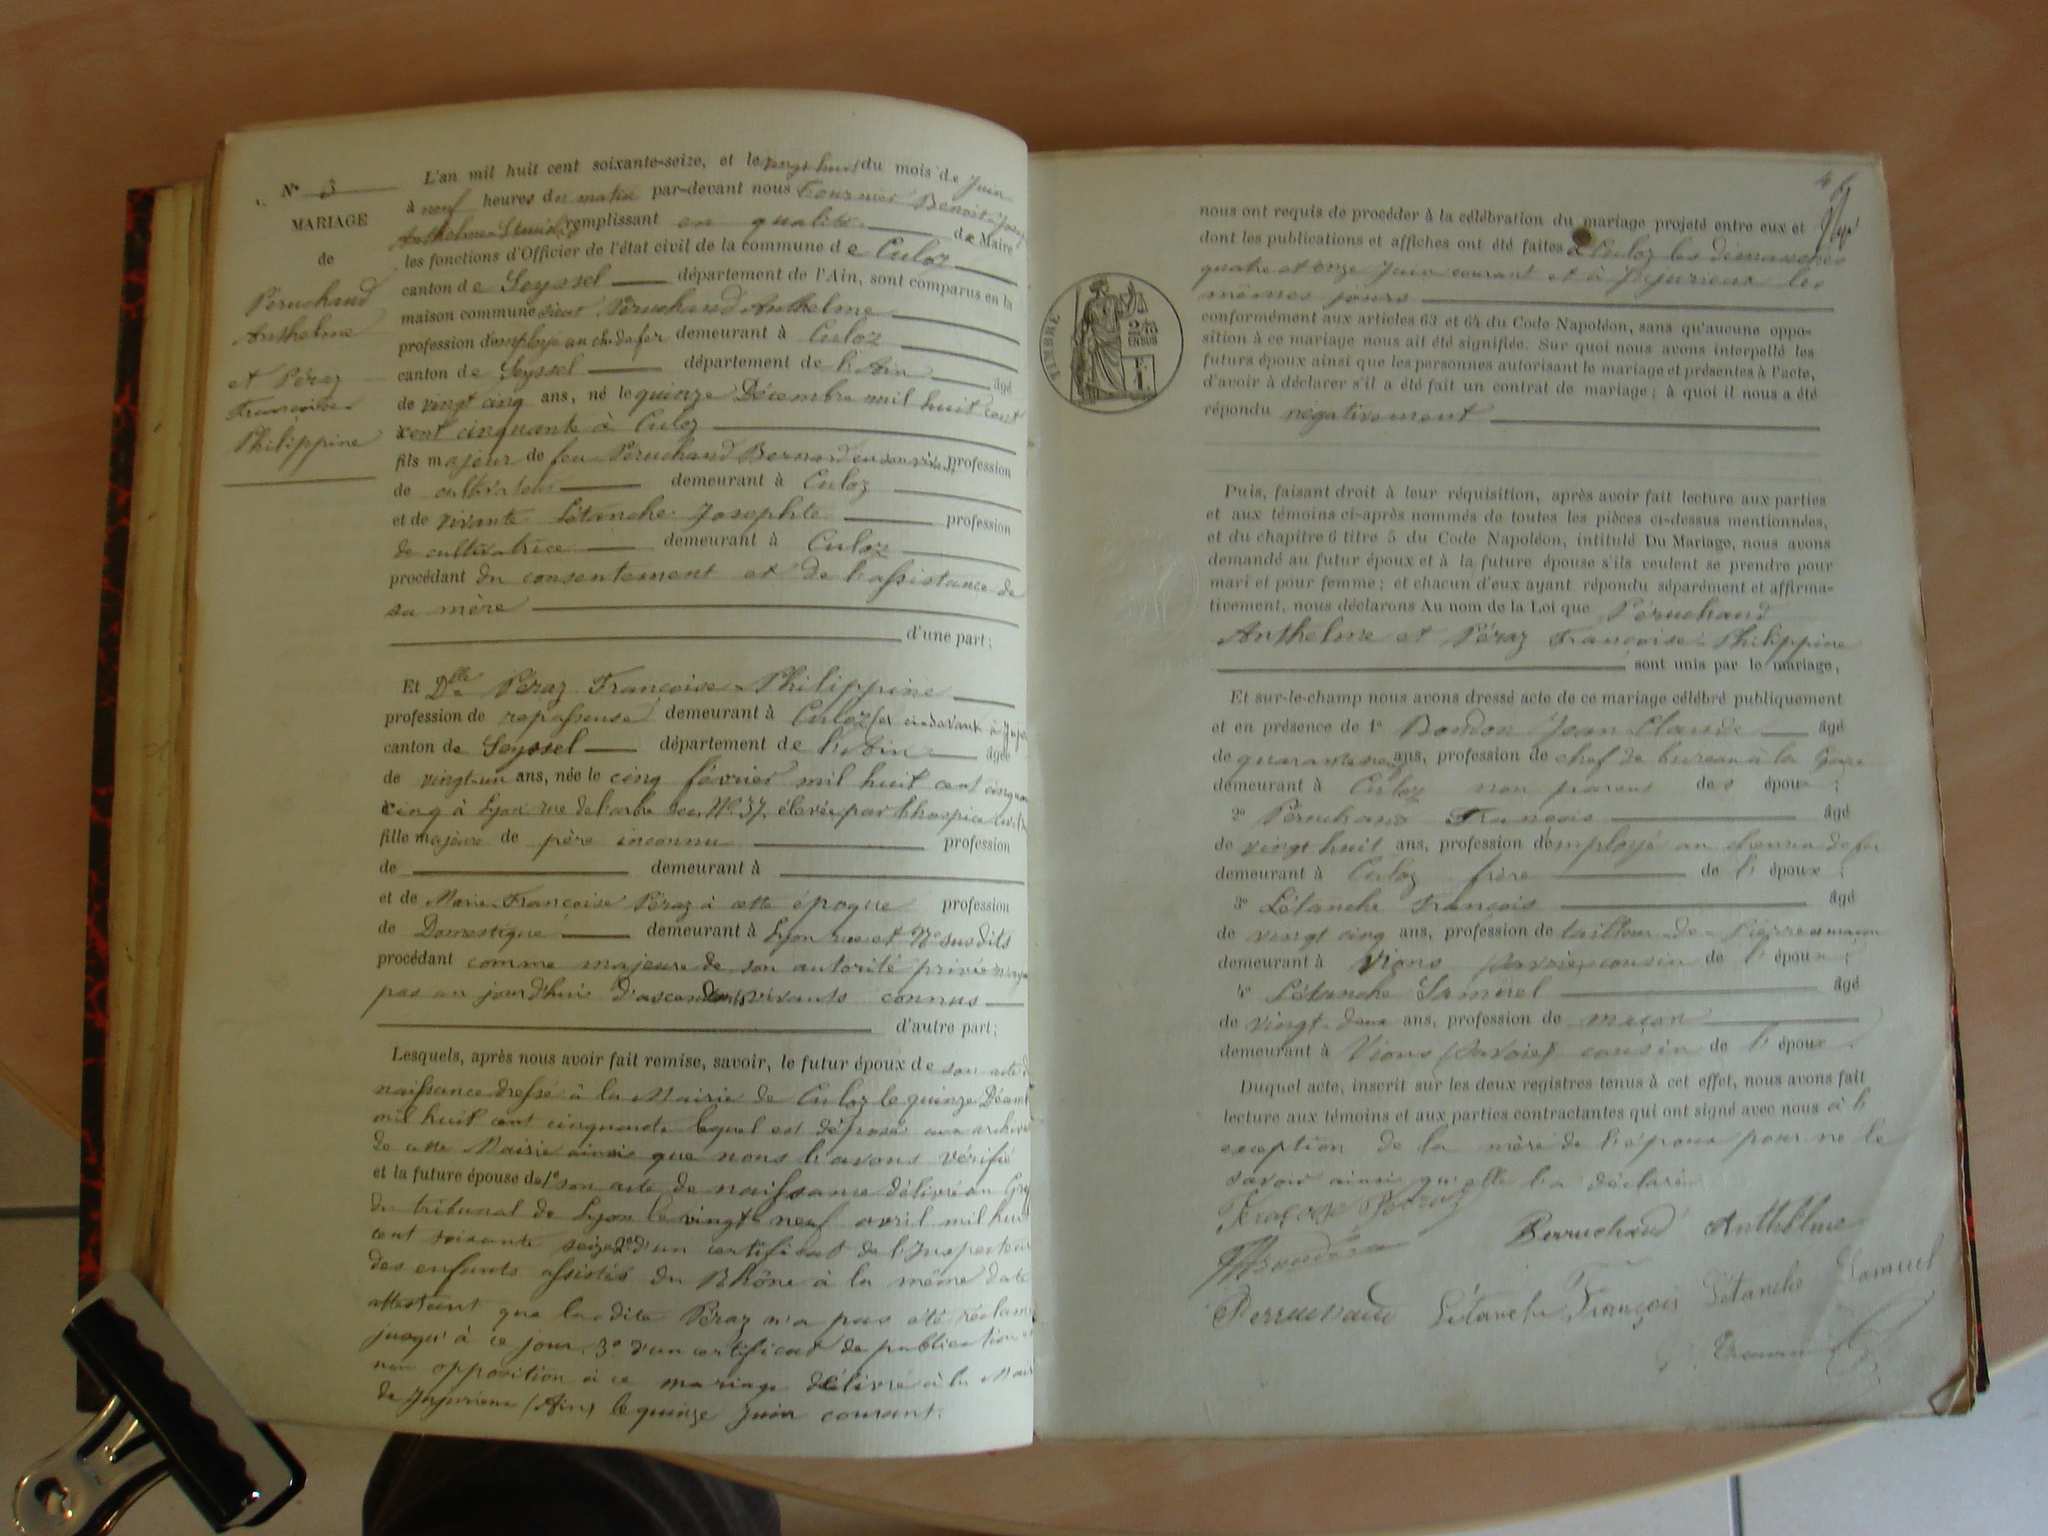 N° 3
MARIAGE
de
Péruchaud
Anthelme
et Péraz
Françoise-
Philippine
L'an mil huit cent soixante-seize, et le vingt huit du mois de Juin
à neuf heures du matin par-devant nous Fournier Benoit
Anthelme remplissant en qualité de Maire
les fonctions d'Officier de l'état civil de la commune de Culoz
canton de Seyssel département de l'Ain, sont comparus en la
maison commune sieur Péruchaud Anthelme
profession d'employé au ch. de fer demeurant à Culoz
canton de Seyssel département de l'Ain âgé
de vingt cinq ans, né le quinze Décembre mil huit cent
cent cinquante à Culoz
fils majeur de feu Péruchaud Bernard en son vivant profession
de cultivateur demeurant à Culoz
et de vivante Létanche Josephte profession
de cultivatrice demeurant à Culoz
procédant du consentement et de l'assistance de
sa mère
d'une part;
Et Dlle Péraz Françoise-Philippine
profession de repasseuse demeurant à Culoz (et cidevant à Juju
canton de Seyssel département de l'Ain âgée
de vingt-un ans, née le cinq février mil huit cent cinquan
cinq à Lyon rue de l'arbre sec, N° 37, élevée par l'hospice
fille majeure de père inconnu profession
de demeurant à
et de Marie-Françoise Péraz à cette époque profession
de Domestique demeurant à Lyon rue et N° susdits
procédant comme majeure de son autorité privée n'ayan
pas au jourd'hui d'ascendants vivants connus
d'autre part;
Lesquels, après nous avoir fait remise, savoir, le futur époux de son acte d
naissance dressé à la Mairie de Culoz le quinze Décem
mil huit cent cinquante lequel est déposé aux archiv
de cette Mairie ainsi que nous l'avons vérifié
et la future épouse de 1° son acte de naissance délivré au Gre
du tribunal de Lyon le vingt neuf avril mil huit
cent soixante seize 2° d'un certificat de l'Inspecteur
des enfants assistés du Rhône à la même date
attestant que la dite Péraz n'a pas été réclam
jusqu'à ce jour. 3° d'un certificat de publication
non opposition à ce mariage délivré à la Mai
de Jujurieux (Ain) le quinze Juin courant.
nous ont requis de procéder à la célébration du mariage projeté entre eux et
dont les publications et affiches ont été faites à Culoz les dimanches
quatre et onze Juin courant et à Jujurieux les
mêmes jours
conformément aux articles 63 et 64 du Code Napoléon, sans qu'aucune oppo-
sition à ce mariage nous ait été signifiée. Sur quoi nous avons interpellé les
futurs époux ainsi que les personnes autorisant le mariage et présentes à l'acte,
d'avoir à déclarer s'il a été fait un contrat de mariage; à quoi il nous a été
répondu négativement
TIMBRE
Puis, faisant droit à leur réquisition, après avoir fait lecture aux parties
et aux témoins ci-après nommés de toutes les pièces ci-dessus mentionnées,
et du chapitre 6 titre 5 du Code Napoléon, intitulé Du Mariage, nous avons
demandé au futur époux et à la future épouse s'ils veulent se prendre pour
mari et pour femme; et chacun d'eux ayant répondu séparément et affirma-
tivement, nous déclarons Au nom de la Loi que Péruchaud
Anthelme et Péraz Françoise-Philippine
sont unis par le mariage,
Et sur-le-champ nous avons dressé acte de ce mariage célébré publiquement
et en présence de 1° Jean-Claude âgé
de ans, profession de chef de bureau à la Gare
demeurant à Culoz non parent des époux;
2° Péruchaud François âgé
de vingt huit ans, profession d'employé au chemin de fer
demeurant à Culoz frère de l'époux;
3° Létanche François âgé
de vingt cinq ans, profession de tailleur-de-pierre et maçon
demeurant à Vions (Savoie) cousin de l'époux;
4° Létanche Samuel âgé
de vingt-deux ans, profession de maçon
demeurant à Vions (Savoie) cousin de l'époux.
Duquel acte, inscrit sur les deux registres tenus à cet effet, nous avons fait
lecture aux témoins et aux parties contractantes qui ont signé avec nous à l'
exception de la mère de l'époux pour ne le
savoir ainsi qu'elle l'a déclaré.
Perruchaud Anthelme
Létanche François Létanche Samuel